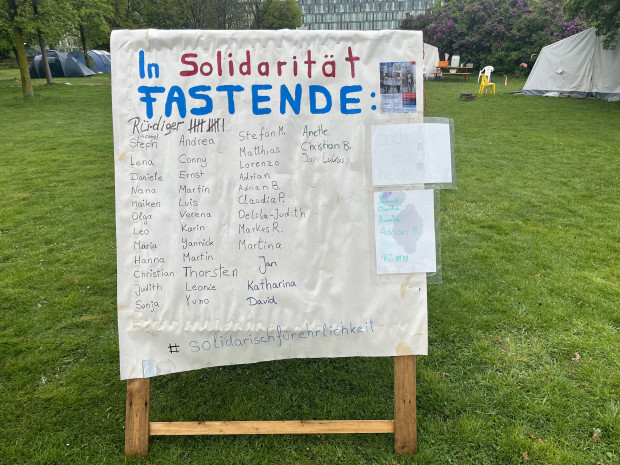 In Solidarität
FASTENDE:
Rüdiger
Steph
Lena
Daniele
Nana
Maiken
Olga
Leo
Maria
Hanna
Christian
Judith
Sonja
Andrea
Conny
Ernst
Martin
Luis
Verena
Karin
Yannick
Martin
Thorsten
Leonie
Yuno
Stefan M.
Matthias
Lorenzo
Adrian
Adrian B.
Claudia P.
Delila-Judith
Markus R.
Martina
Jan
Katharina
David
Anette
Christian B.
Jan Lukas
Adrian B.
# solidarischfürehrlichkeit